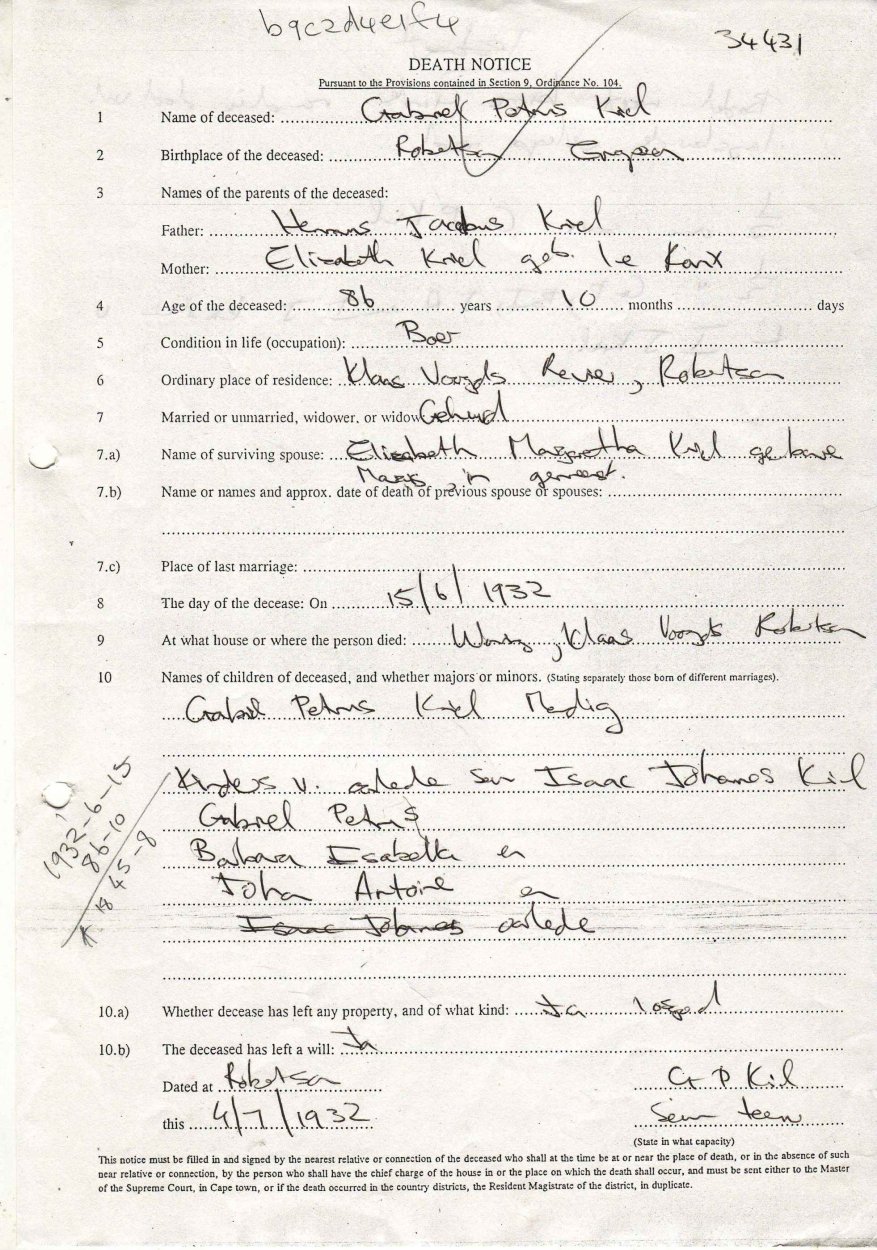 b9c2d4e1f4
34431
DEATH NOTICE
Pursuant to the Provisions contained in Section 9, Ordinance No. 104.
1 Name of deceased: Gabriel Petrus Kriel
2 Birthplace of the deceased: Robertson
3 Names of the parents of the deceased:
Father: Hermanus Jacobus Kriel
Mother: Elizabeth Kriel geb. le
4 Age of the deceased: 86 years 10 months days
5 Condition in life (occupation): Boer
6 Ordinary place of residence: Klaas Voogds Revier, Robertson
7 Married or unmarried, widower, or widow Gehuwd
7.a) Name of surviving spouse: Elizabeth Margaretha Kriel gebore
in gemeenst.
7.b) Name or names and approx. date of death of previous spouse or spouses:
7.c) Place of last marriage:
8 The day of the decease: On 15/6/1932
9 At what house or where the person died: Woning, Klaas Voogds Robertson
10 Names of children of deceased, and whether majors or minors. (Stating separately those born of different marriages).
Gabriel Petrus Kriel Mondig
Kinders v. oorlede seun Isaac Johannes Kriel
Gabriel Petrus
Barbara Isabella en
Johan Antoine en
Isaac Johannes oorlede
1932-6-15
86-10
K 1845-8
10.a) Whether decease has left any property, and of what kind: Ja losgoed
10.b) The deceased has left a will: Ja
Dated at Robertson G P Kriel
this 4/7/1932 Seun
(State in what capacity)
This notice must be filled in and signed by the nearest relative or connection of the deceased who shall at the time be at or near the place of death, or in the absence of such
near relative or connection, by the person who shall have the chief charge of the house in or the place on which the death shall occur, and must be sent either to the Master
of the Supreme Court, in Cape town, or if the death occurred in the country districts, the Resident Magistrate of the district, in duplicate.